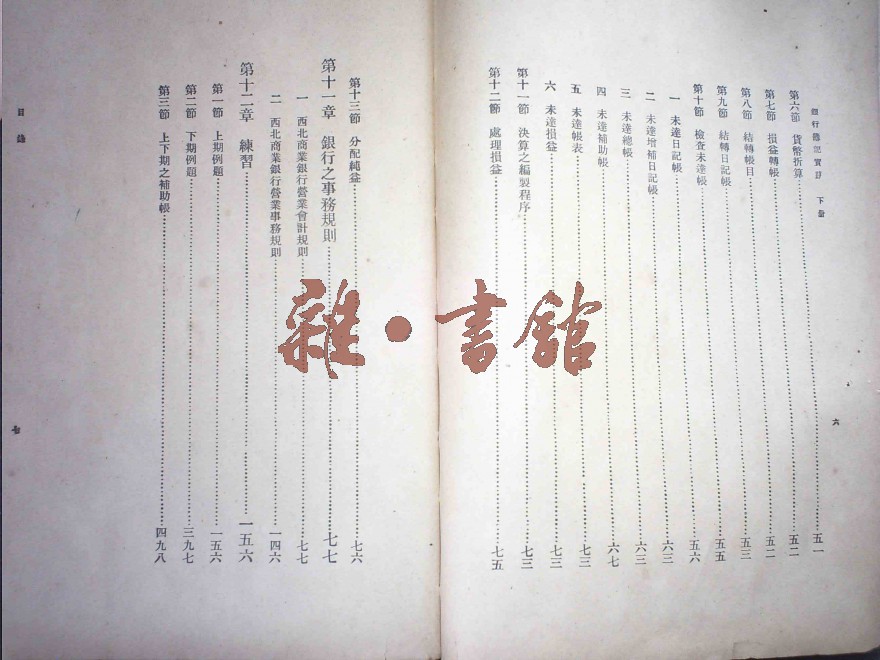 銀行簿記實習 下册
六
第六節 貨幣折算 五一
第七節 損益轉帳 五二
第八節 結轉帳目 五三
第九節 結轉日記帳 五五
第十節 檢查未達帳 五六
一 未達日記帳 六三
二 未達增補日記帳 六三
三 未達總帳 六三
四 未達補助帳 六七
五 未達帳表 七三
六 未達損益 七三
第十一節 決算之編製程序 七三
第十二節 處理損益 七五
第十三節 分配純益 七六
第十一章 銀行之事務規則 七七
一 西北商業銀行營業會計規則 七七
二 西北商業銀行營業事務規則 一四六
第十二章 練習 一五六
第一節 上期例題 一五六
第二節 下期例題 三九七
第三節 上下期之補助帳 四九八
目錄
七
雜・書館